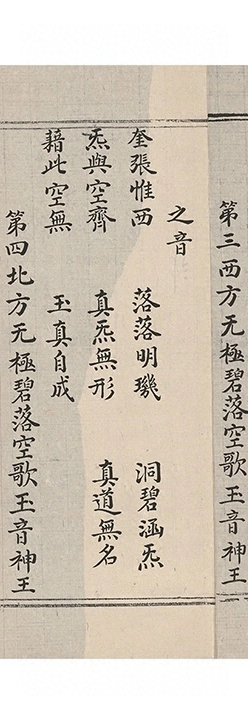 第三西方无極碧落空歌玉音神王
之音
奎張惟西　落落明璣　洞碧涵炁
炁與空齊　真炁無形　真道無名
藉此空無　玉真自成
第四北方无極碧落空歌玉音神王